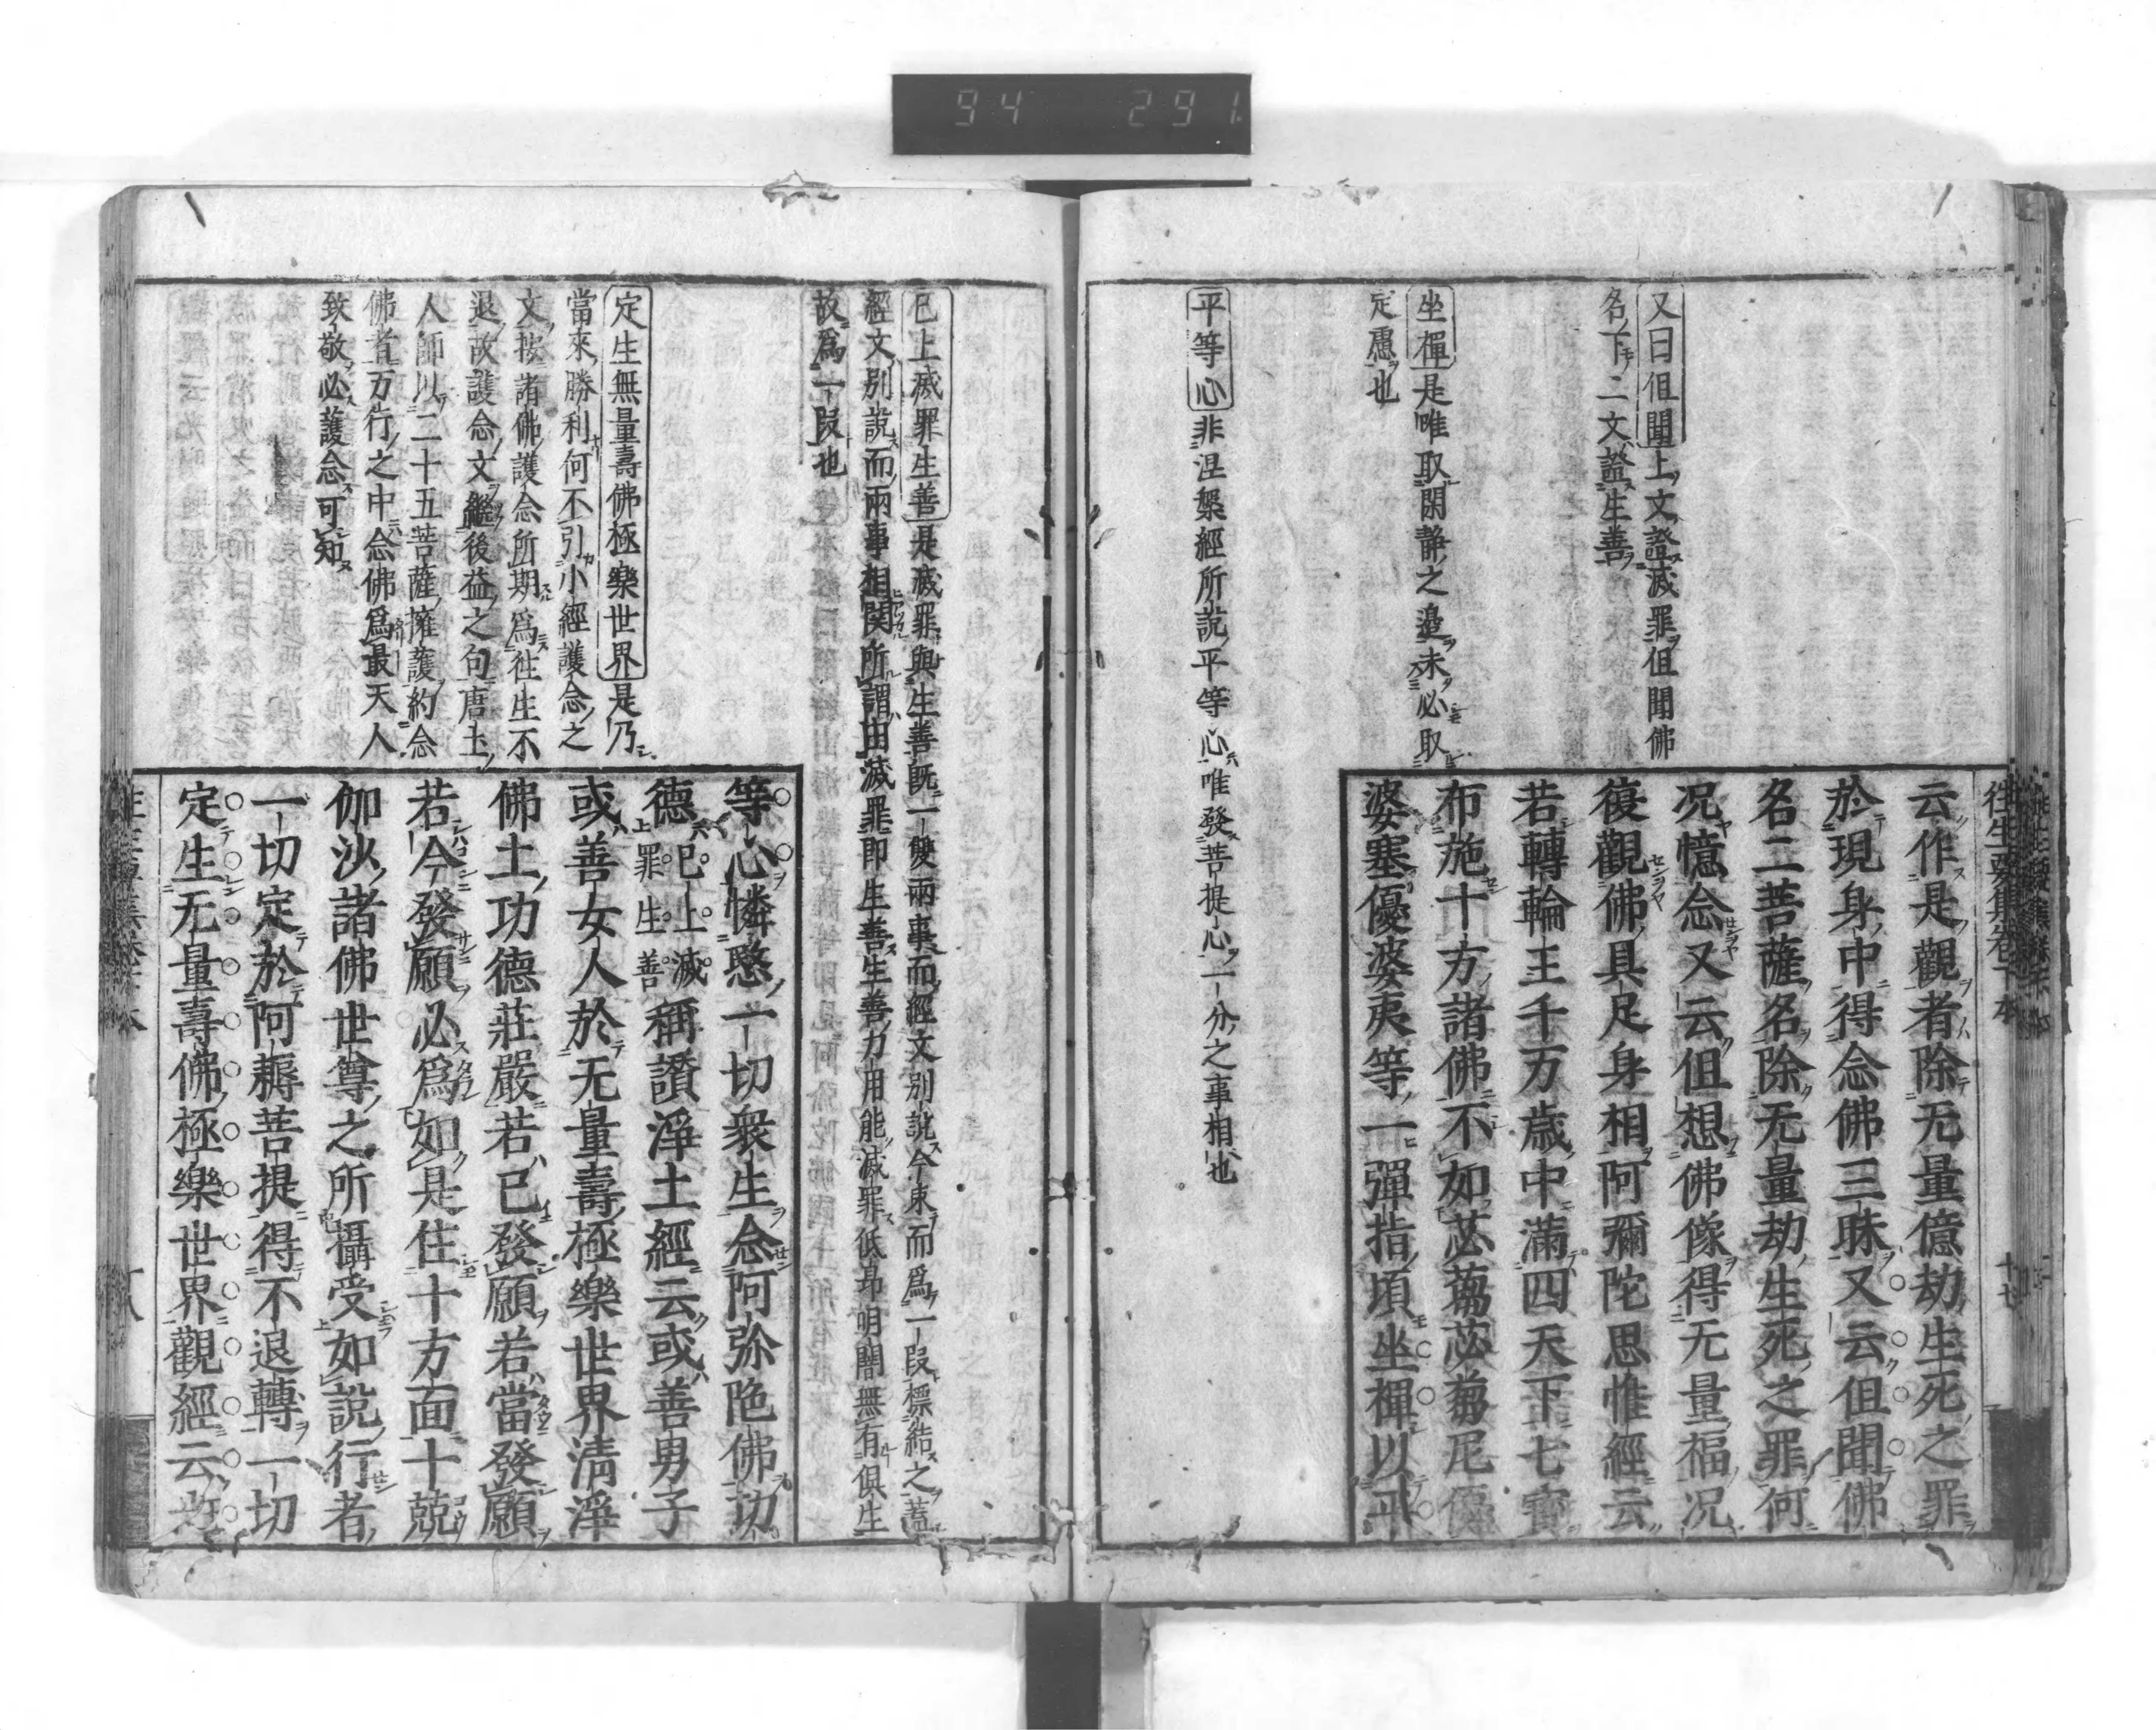 94 291
往生要集卷下本
十七
云作是觀者除无量億劫生死之罪
於現身中得念佛三昧又云但聞佛
名二菩薩名除无量劫生死之罪何
况憶念又云但想佛像得无量福况
復觀佛具足身相阿彌陀思惟經云
若轉輪王千万歲中滿四天下七寶
布施十方諸佛不如苾蒭苾蒭尼優
婆塞優婆夷等一彈指頃坐禪以平
又曰但聞上文證滅罪但聞佛
名下二文證生善
坐禪是唯取閑靜之邊未必取
定慮也
平等心非涅槃經所說平等心唯發菩提心一分之事相也
已上滅罪生善是滅罪與生善既一雙兩事而經文別說今束而爲一段標結之蓋
經文別說而兩事相関所謂由滅罪即生善生善力用能滅罪低昻明闇無有俱生
故爲一段也
定生無量壽佛極樂世界是乃
當來勝利何不引小經護念之
文按諸佛護念所期爲往生不
退故護念文繼後益之句唐土
人師以二十五菩薩擁護約念
佛者万行之中念佛爲最天人
致敬必護念可知
等心憐愍一切衆生念阿弥陁佛功
德已上滅罪生善稱讚淨土經云或善男子
或善女人於无量壽極樂世界淸淨
佛土功德莊嚴若已發願若當發願
若今發願必爲如是住十方面十兢
伽沙諸佛世尊之所攝受如說行者
一切定於阿耨菩提得不退轉一切
定生无量壽佛極樂世界觀經云
十八